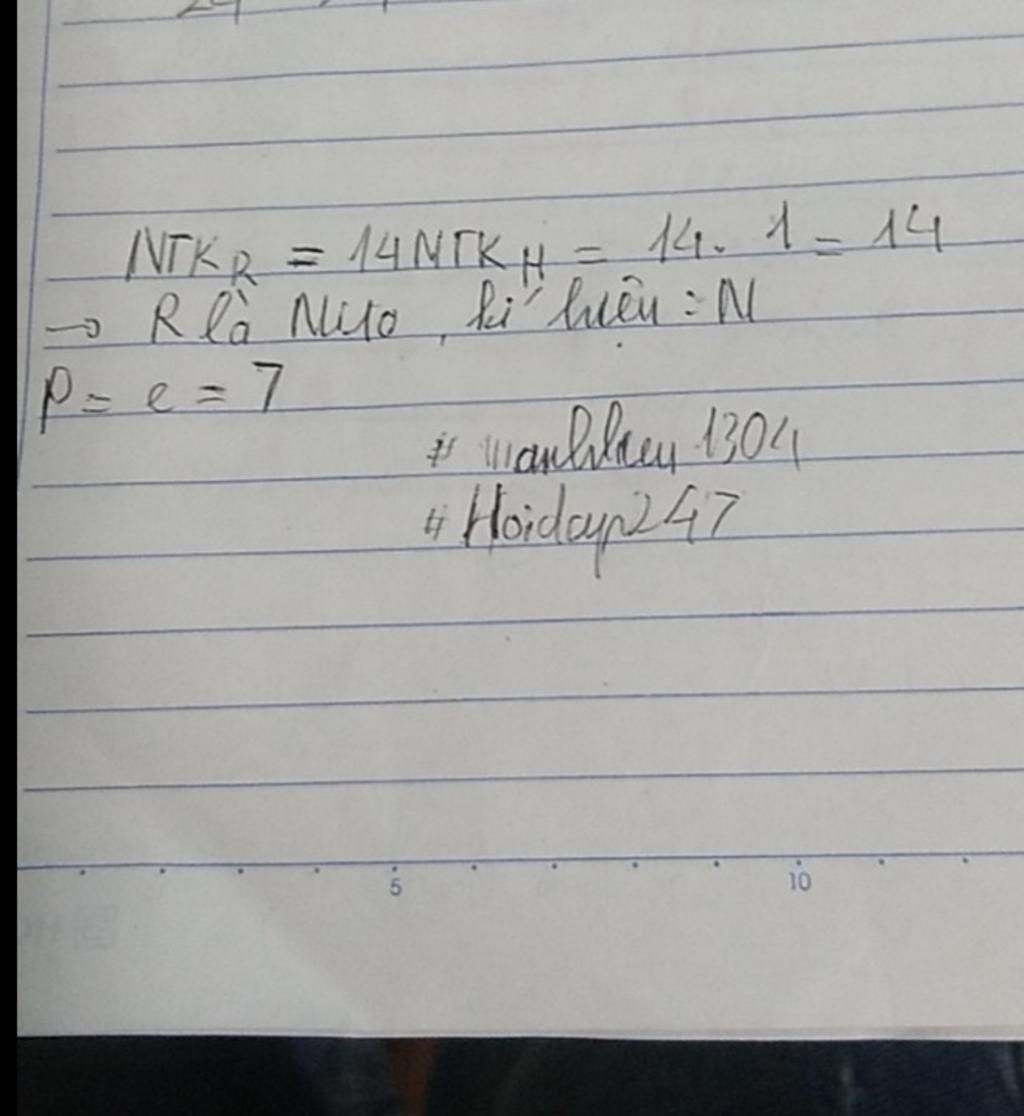 NTK R = 14 NTK H = 14. 1 = 14
→ R là Nito, kí hiệu : N
p = e = 7
# 1304
# Hoidap247
5 10